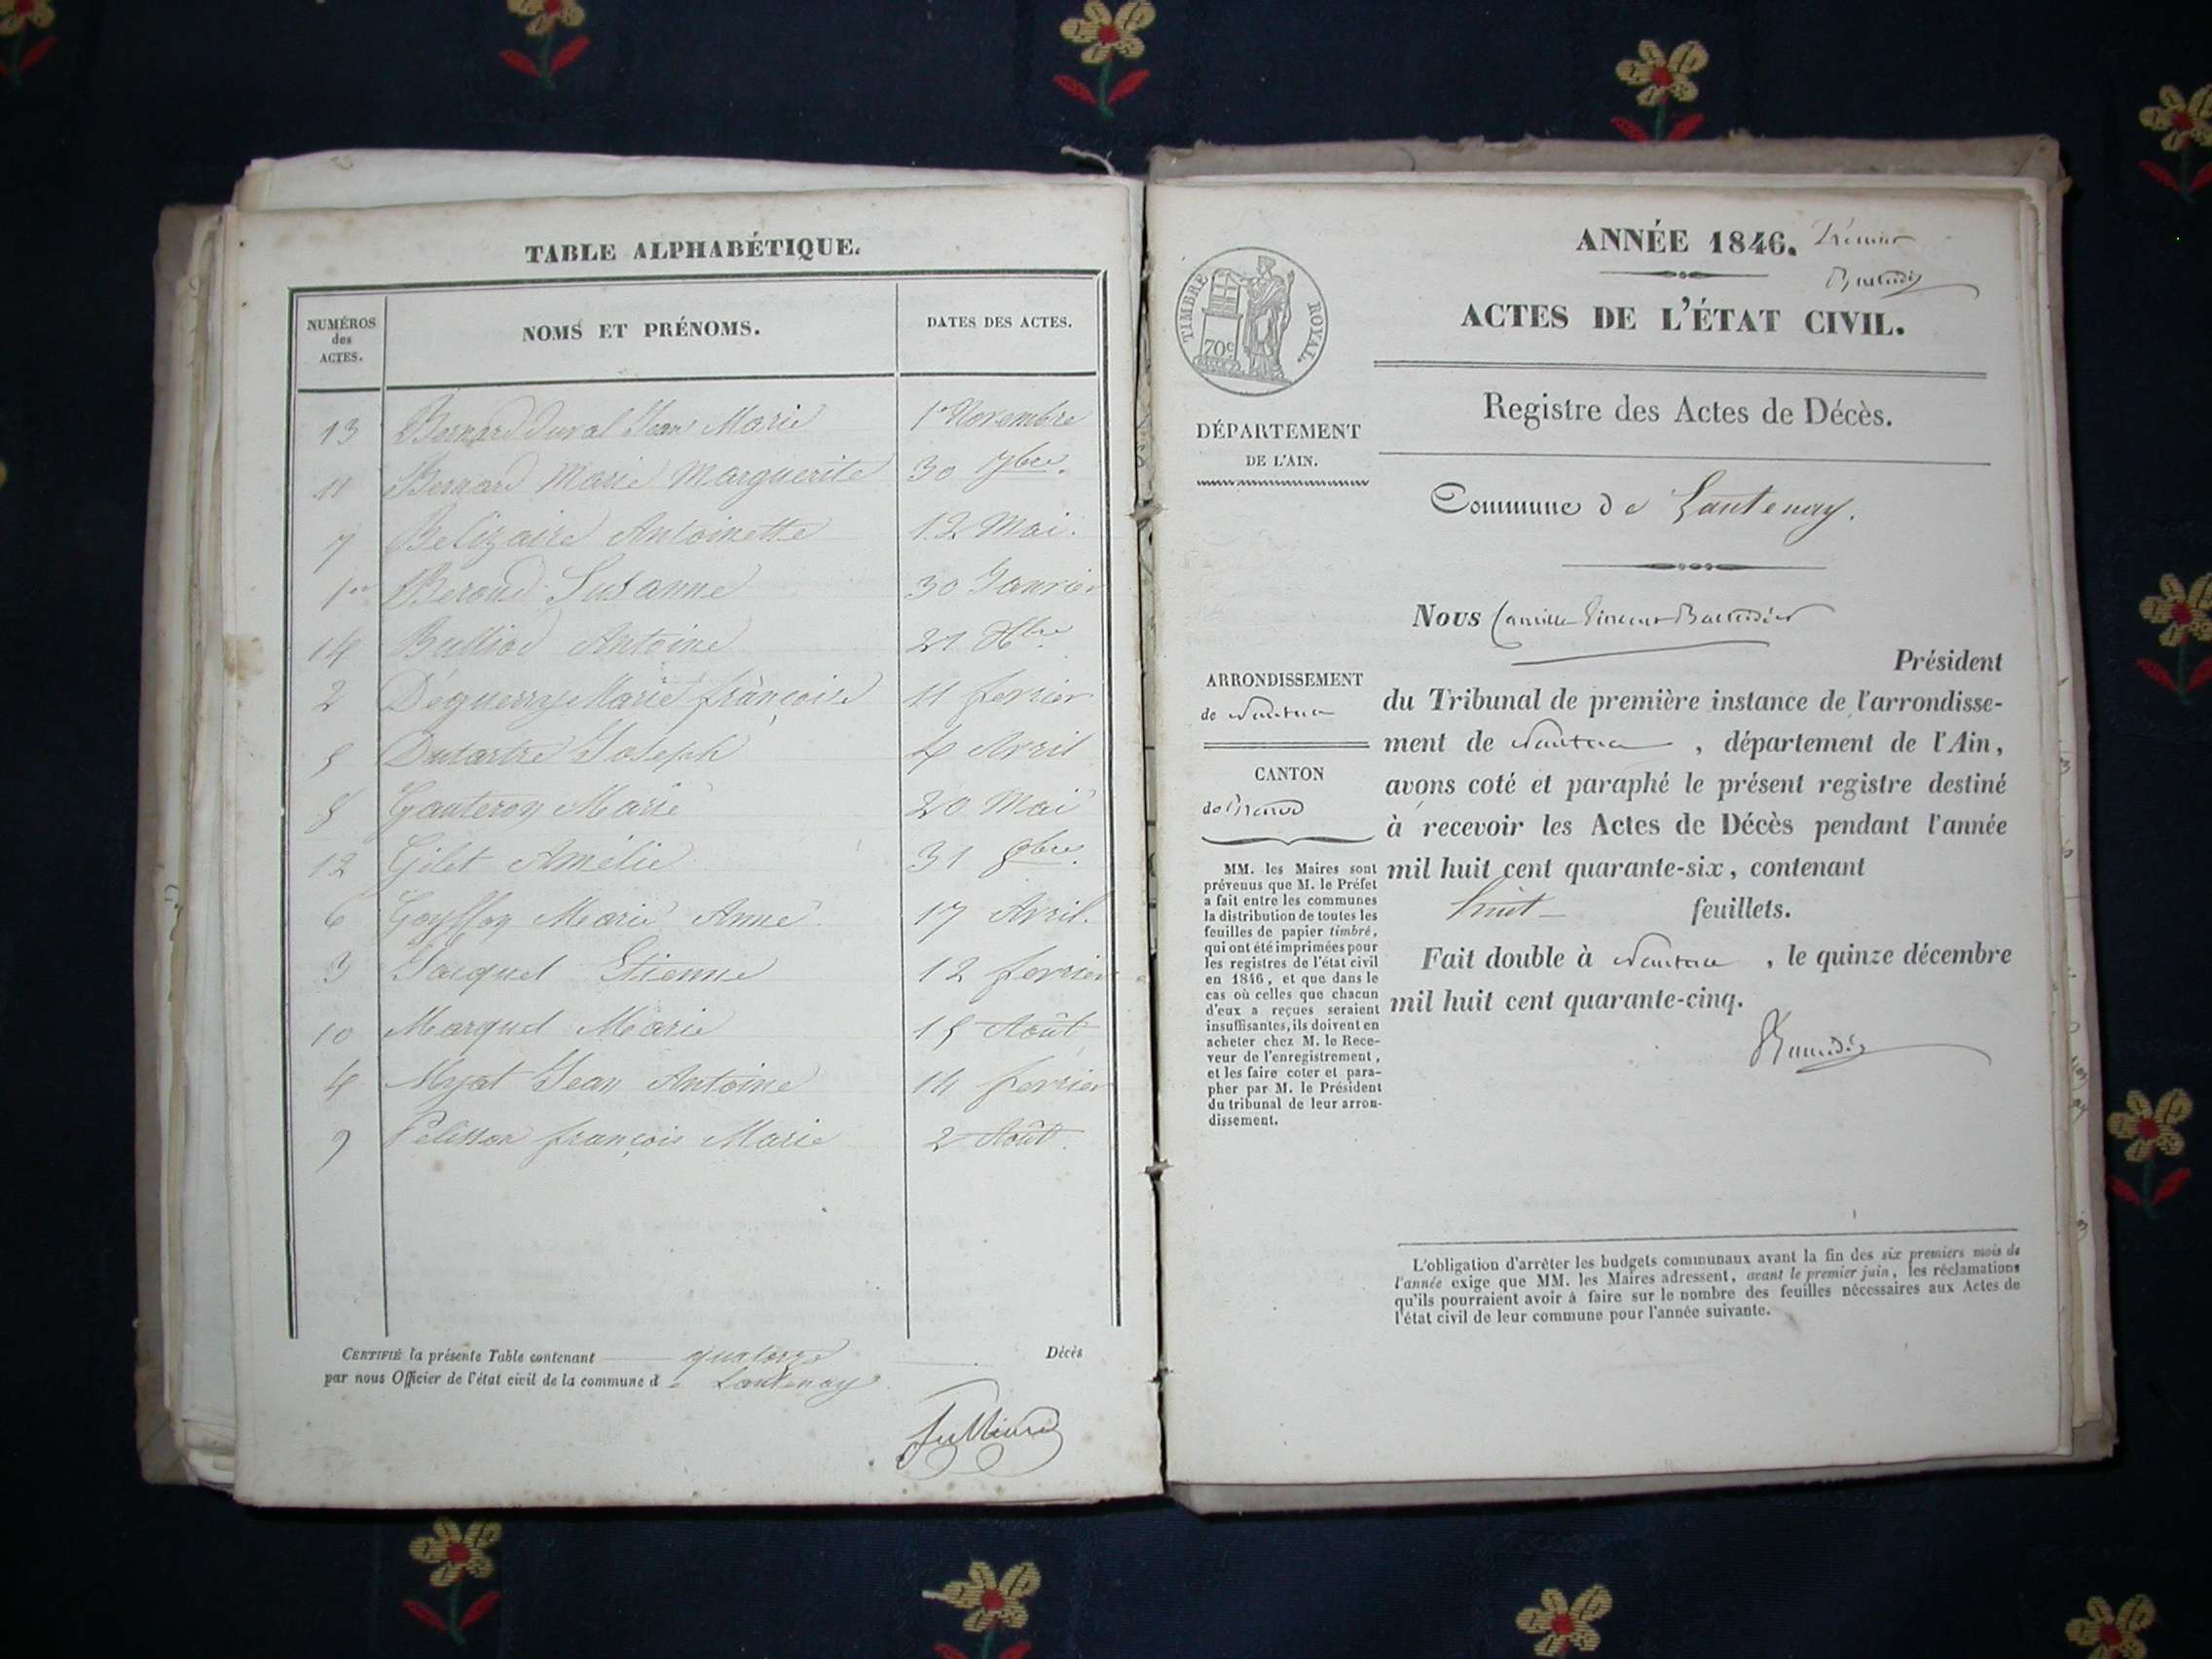 TABLE ALPHABÉTIQUE.
NUMÉROS
des
ACTES.
NOMS ET PRÉNOMS.
DATES DES ACTES.
13 Bernard Duval Jean Marie 1er Novembre
11 Bernard Marie Marguerite 30 7bre.
7 Belizaire Antoinette 12 Mai.
1er Beroud Susanne 30 Janvier
14 Bulliod Antoine 21 Xbre
2 Déguerry Marie françoise 11 fevrier
5 Dutartre Joseph 4 Avril
8 Gauteron Marie 20 Mai
12 Gilet Amélie 31 8bre.
6 Goyffon Marie Anne 17 Avril.
3 Jacquet Etienne 12 fevrier
10 Marquet Marie 15 Août
4 Myat Jean Antoine 14 fevrier
9 Pelisson françois Marie 2 Août.
CERTIFIÉ la présente Table contenant quatorze Décès
par nous Officier de l'état civil de la commune de Lantenay
ANNÉE 1846. Premier
ACTES DE L'ÉTAT CIVIL.
TIMBRE ROYAL.
70c
Registre des Actes de Décès.
DÉPARTEMENT
DE L'AIN.
Commune de Lantenay.
Nous Camille Vincent
Président
du Tribunal de première instance de l'arrondisse-
ment de Nantua, département de l'Ain,
avons coté et paraphé le présent registre destiné
à recevoir les Actes de Décès pendant l'année
mil huit cent quarante-six, contenant
huit feuillets.
Fait double à Nantua, le quinze décembre
mil huit cent quarante-cinq.
ARRONDISSEMENT
de Nantua
CANTON
de Brenod
MM. les Maires sont
prévenus que M. le Préfet
a fait entre les communes
la distribution de toutes les
feuilles de papier timbré,
qui ont été imprimées pour
les registres de l'état civil
en 1846, et que dans le
cas où celles que chacun
d'eux a reçues seraient
insuffisantes, ils doivent en
acheter chez M. le Rece-
veur de l'enregistrement,
et les faire coter et para-
pher par M. le Président
du tribunal de leur arron-
dissement.
L'obligation d'arrêter les budgets communaux avant la fin des six premiers mois de
l'année exige que MM. les Maires adressent, avant le premier juin, les réclamations
qu'ils pourraient avoir à faire sur le nombre des feuilles nécessaires aux Actes de
l'état civil de leur commune pour l'année suivante.